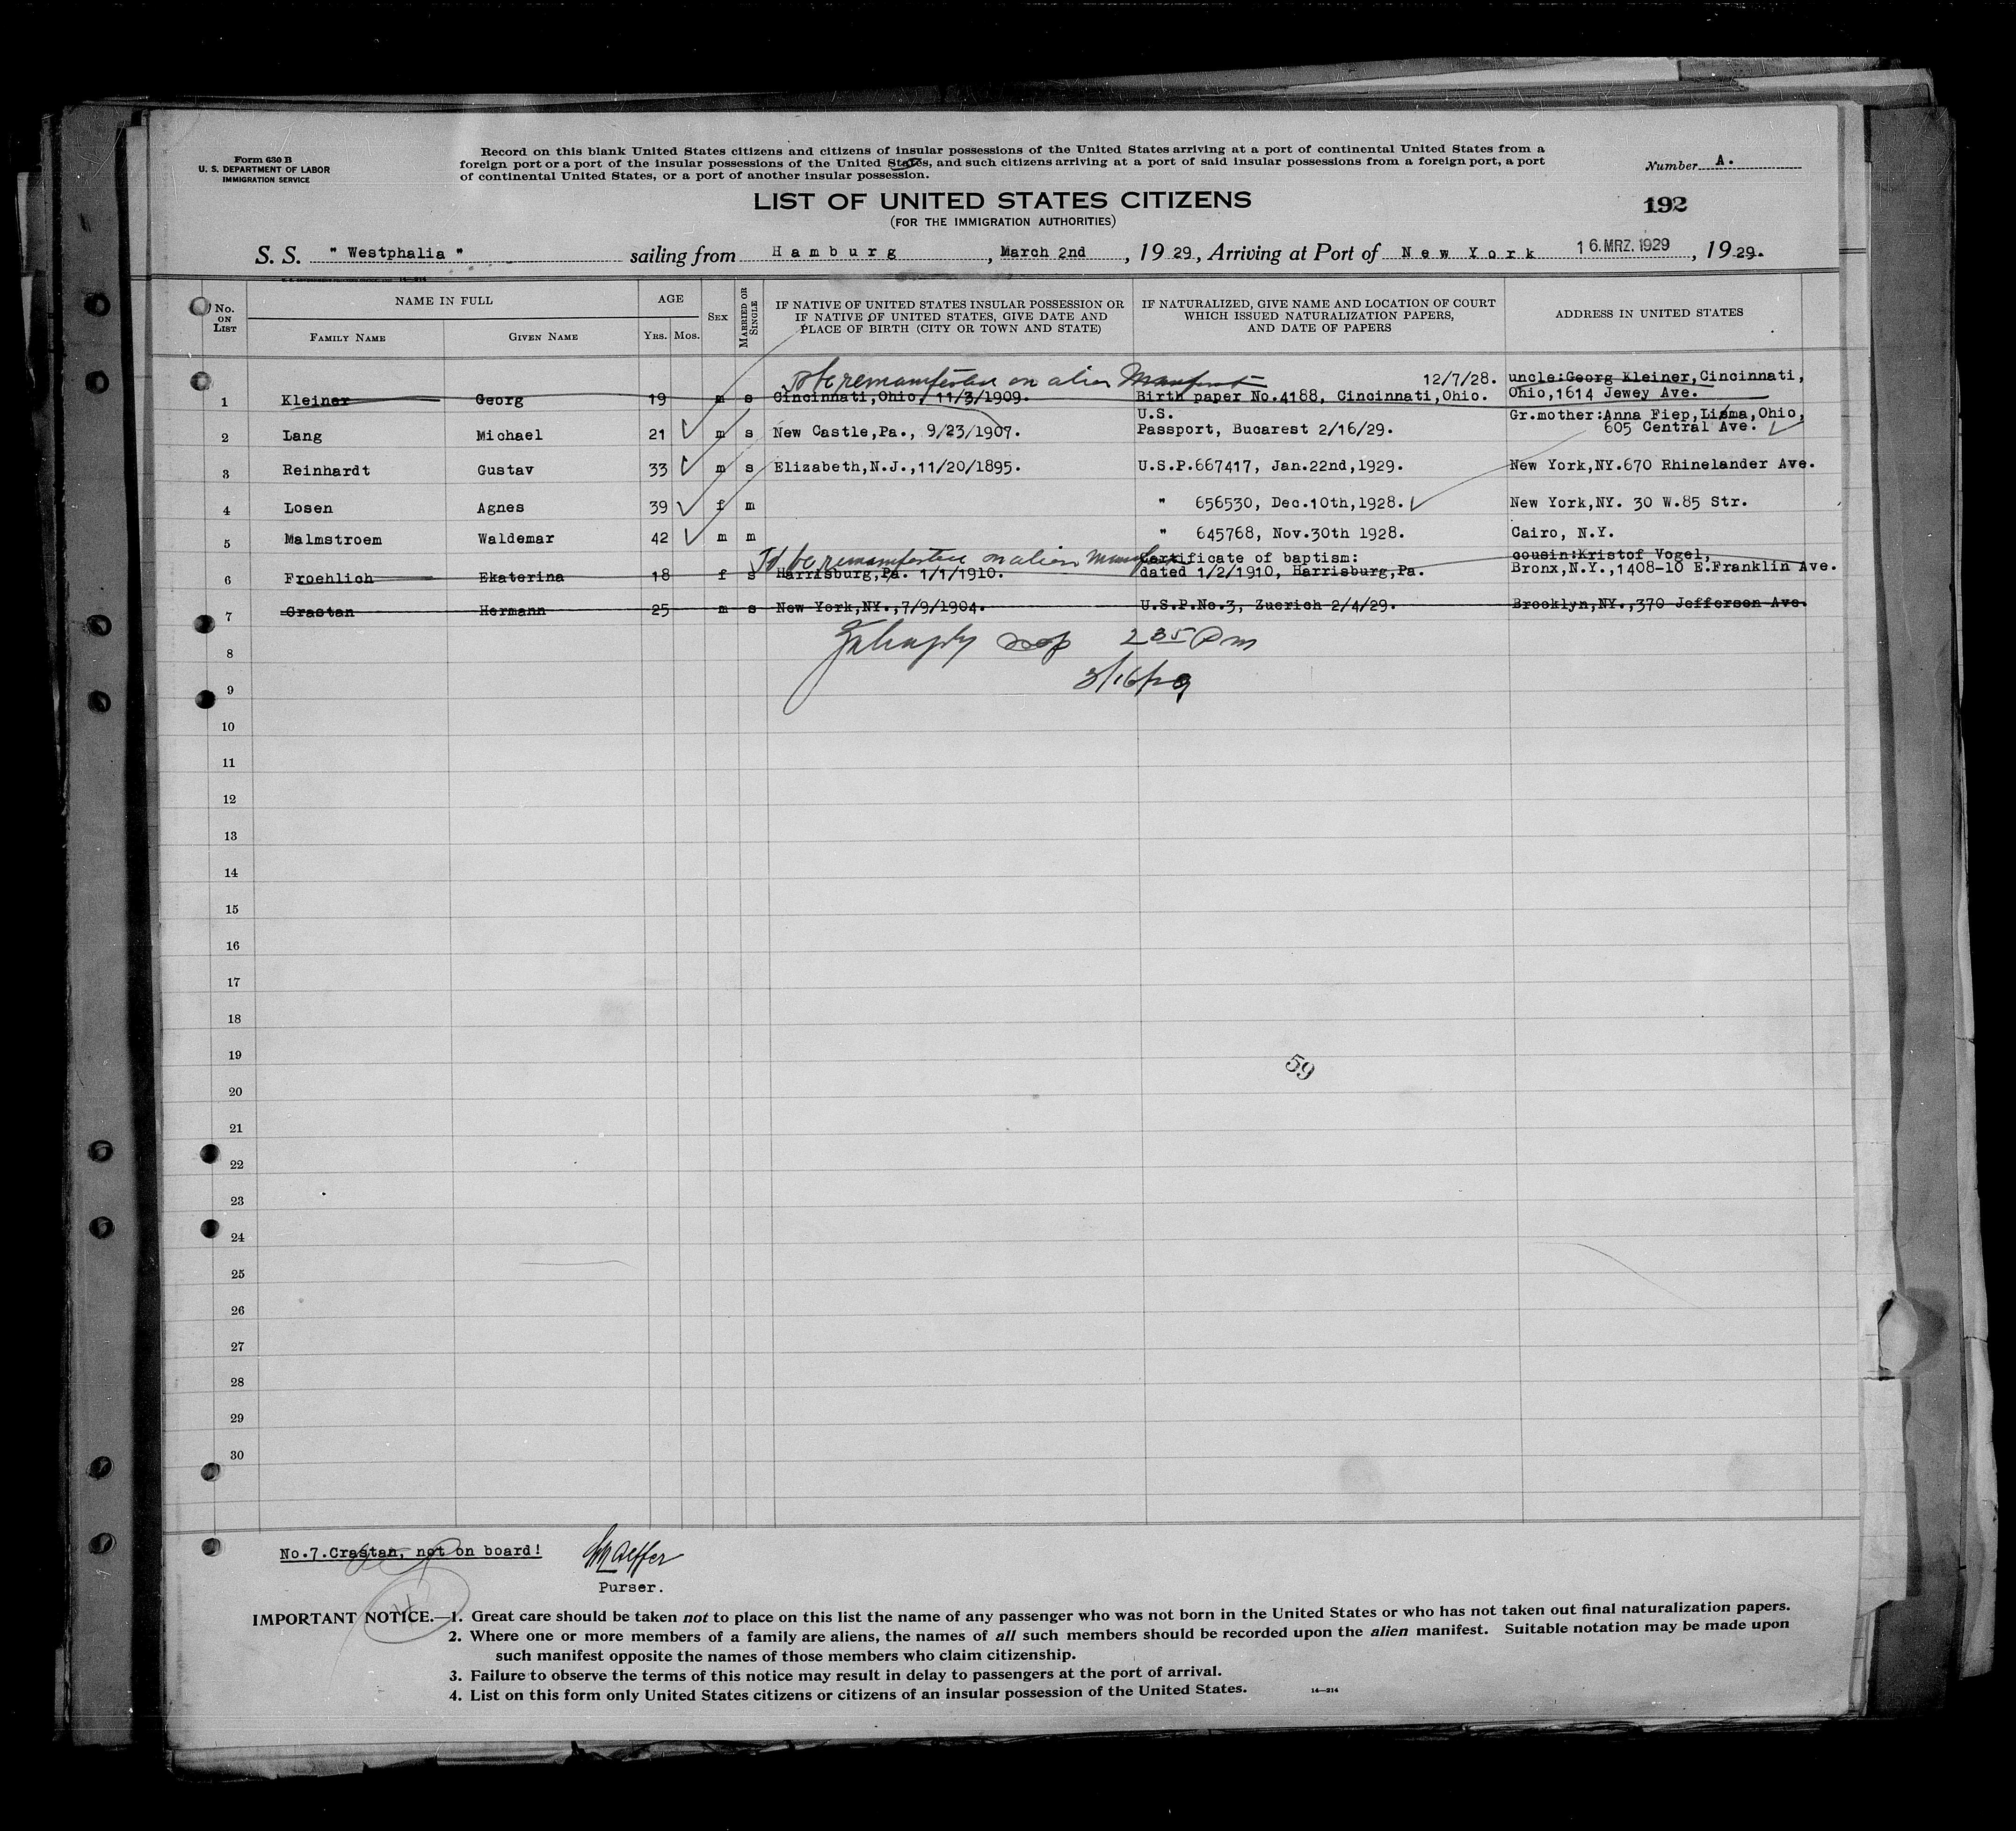 Form 630 B
U. S. DEPARTMENT OF LABOR
IMMIGRATION SERVICE
Record on this blank United States citizens and citizens of insular possessions of the United States arriving at a port of continental United States from a
foreign port or a port of the insular possessions of the United States, and such citizens arriving at a port of said insular possessions from a foreign port, a port
of continental United States, or a port of another insular possession.
Number A.
LIST OF UNITED STATES CITIZENS
(FOR THE IMMIGRATION AUTHORITIES)
192
S. S. " Westphalia " sailing from Hamburg, March 2nd, 1929, Arriving at Port of New York 16.MRZ.1929, 1929.
No. ON LIST
NAME IN FULL
FAMILY NAME GIVEN NAME
AGE
YRS. MOS.
SEX
MARRIED OR SINGLE
IF NATIVE OF UNITED STATES INSULAR POSSESSION OR
IF NATIVE OF UNITED STATES, GIVE DATE AND
PLACE OF BIRTH (CITY OR TOWN AND STATE)
IF NATURALIZED, GIVE NAME AND LOCATION OF COURT
WHICH ISSUED NATURALIZATION PAPERS,
AND DATE OF PAPERS
ADDRESS IN UNITED STATES
To be remanifested on alien Manifest 12/7/28. uncle:Georg Kleiner,Cincinnati,
1 Kleiner Georg 19 m s Cincinnati,Ohio, 11/3/1909. Birth paper No.4188, Cincinnati,Ohio. Ohio,1614 Jewey Ave.
U.S. Gr.mother:Anna Fiep,Lisma,Ohio,
2 Lang Michael 21 m s New Castle,Pa., 9/23/1907. Passport, Bucarest 2/16/29. 605 Central Ave.
3 Reinhardt Gustav 33 m s Elizabeth,N.J.,11/20/1895. U.S.P.667417, Jan.22nd,1929. New York,NY.670 Rhinelander Ave.
4 Losen Agnes 39 f m " 656530, Dec.10th,1928. New York,NY. 30 W.85 Str.
5 Malmstroem Waldemar 42 m m " 645768, Nov.30th 1928. Cairo, N.Y.
To be remanifested on alien Manifest Certificate of baptism: cousin:Kristof Vogel,
6 Froehlich Ekaterina 18 f s Harrisburg,Pa. 1/1/1910. dated 1/2/1910, Harrisburg,Pa. Bronx,N.Y.,1408-10 E.Franklin Ave.
7 Crastan Hermann 25 m s New York,NY.,7/9/1904. U.S.P.No.3, Zuerich 2/4/29. Brooklyn,NY.,370 Jefferson Ave.
2 35 Pm
8
3/16/29
9
10
11
12
13
14
15
16
17
18
19
59
20
21
22
23
24
25
26
27
28
29
30
No.7.Crastan, not on board!
Purser.
IMPORTANT NOTICE.—1. Great care should be taken not to place on this list the name of any passenger who was not born in the United States or who has not taken out final naturalization papers.
2. Where one or more members of a family are aliens, the names of all such members should be recorded upon the alien manifest. Suitable notation may be made upon
such manifest opposite the names of those members who claim citizenship.
3. Failure to observe the terms of this notice may result in delay to passengers at the port of arrival.
4. List on this form only United States citizens or citizens of an insular possession of the United States. 14—214